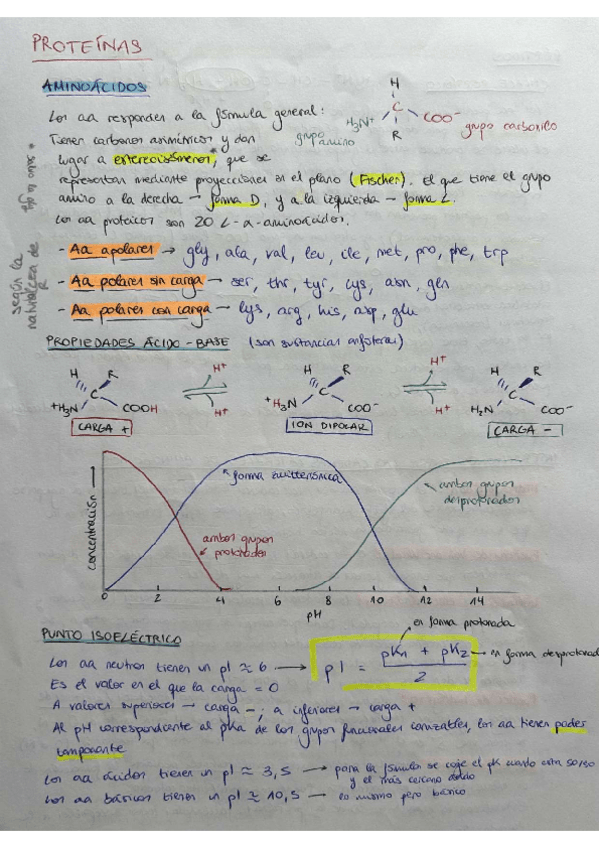 PROTEÍNAS
AMINOÁCIDOS
Los aa responden a la fórmula general:
H
H₃N⁺ C COO⁻
R
grupo amino
grupo carboxilo
Tienen carbonos asimétricos y dan
lugar a estereoisómeros*, que se
representan mediante proyecciones en el plano (Fischer). El que tiene el grupo
amino a la derecha → forma D, y a la izquierda → forma L.
Los aa proteicos son 20 L-α-aminoácidos.
según la naturaleza de R
- Aa apolares → gly, ala, val, leu, ile, met, pro, phe, trp
- Aa polares sin carga → ser, thr, tyr, cys, asn, gln
- Aa polares con carga → lys, arg, his, asp, glu
PROPIEDADES ÁCIDO-BASE (son sustancias anfóteras)
H R C ⁺H₃N COOH
H⁺
H⁺
H R C ⁺H₃N COO⁻
H⁺
H⁺
H R C H₂N COO⁻
CARGA +
ION DIPOLAR
CARGA -
concentración
forma zwitteriónica
ambos grupos protonados
ambos grupos desprotonados
0 2 4 6 8 10 12 14
pH
PUNTO ISOELÉCTRICO
en forma protonada
Los aa neutros tienen un pI ≈ 6 → pI = (pK₁ + pK₂) / 2 → en forma desprotonada
Es el valor en el que la carga = 0
A valores superiores → carga -; a inferiores → carga +
Al pH correspondiente al pKa de los grupos funcionales ionizables, los aa tienen poder
tamponante
Los aa ácidos tienen un pI ≈ 3,5 → para la fórmula se coge el pK cuando esta
y el más cercano ácido
Los aa básicos tienen un pI ≈ 10,5 → lo mismo pero básico